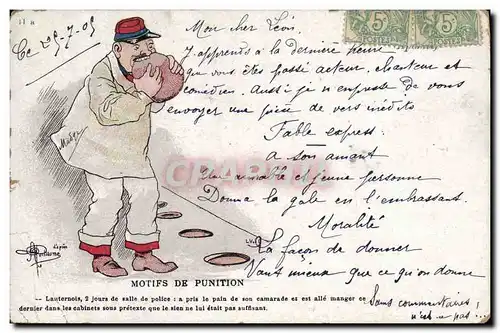 Ce 25-7-05
Mon cher Léon
J'apprends à la dernière heure
que vous êtes passé acteur, chanteur et
comédien. Aussi je m'empresse de vous
envoyer une pièce de vers inédits
Fable express.
A son amant
Une aimable et jeune personne
Donna la gale en l'embrassant.
Moralité
La façon de donner
Vaut mieux que ce qu'on donne
Sans commentaires !
n'est-ce pas...
5c
5c
CPARAMA
MOTIFS DE PUNITION
— Lauternois, 2 jours de salle de police : a pris le pain de son camarade et est allé manger ce
dernier dans les cabinets sous prétexte que le sien ne lui était pas suffisant.